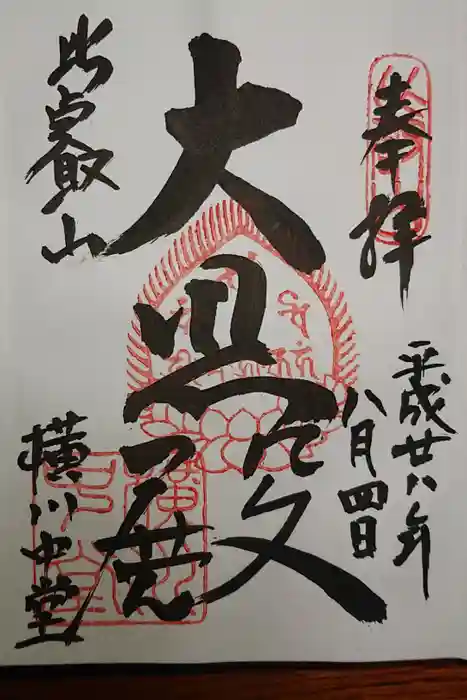 奉拝
平成廿八年
八月四日
大悲殿
比叡山
横川中堂